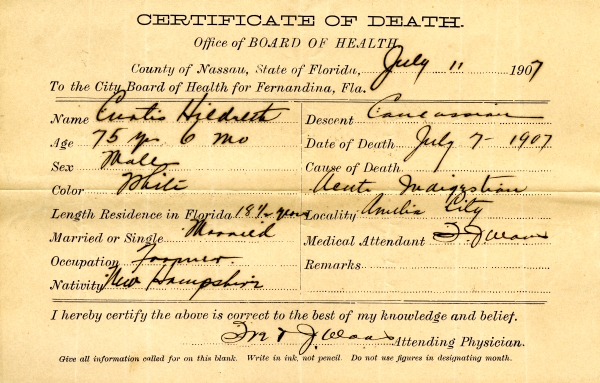 CERTIFICATE OF DEATH.
Office of BOARD OF HEALTH
County of Nassau, State of Florida, July 11 1907
To the City Board of Health for Fernandina, Fla.
Name Curtis Hildreth
Age 75 yrs 6 mo
Sex Male
Color White
Length Residence in Florida 18½ years
Married or Single Married
Occupation Farmer
Nativity New Hampshire
Descent Caucassian
Date of Death July 7 - 1907
Cause of Death
Acute Indigestion
Locality Amelia City
Medical Attendant
Remarks
I hereby certify the above is correct to the best of my knowledge and belief.
Attending Physician.
Give all information called for on this blank. Write in ink, not pencil. Do not use figures in designating month.